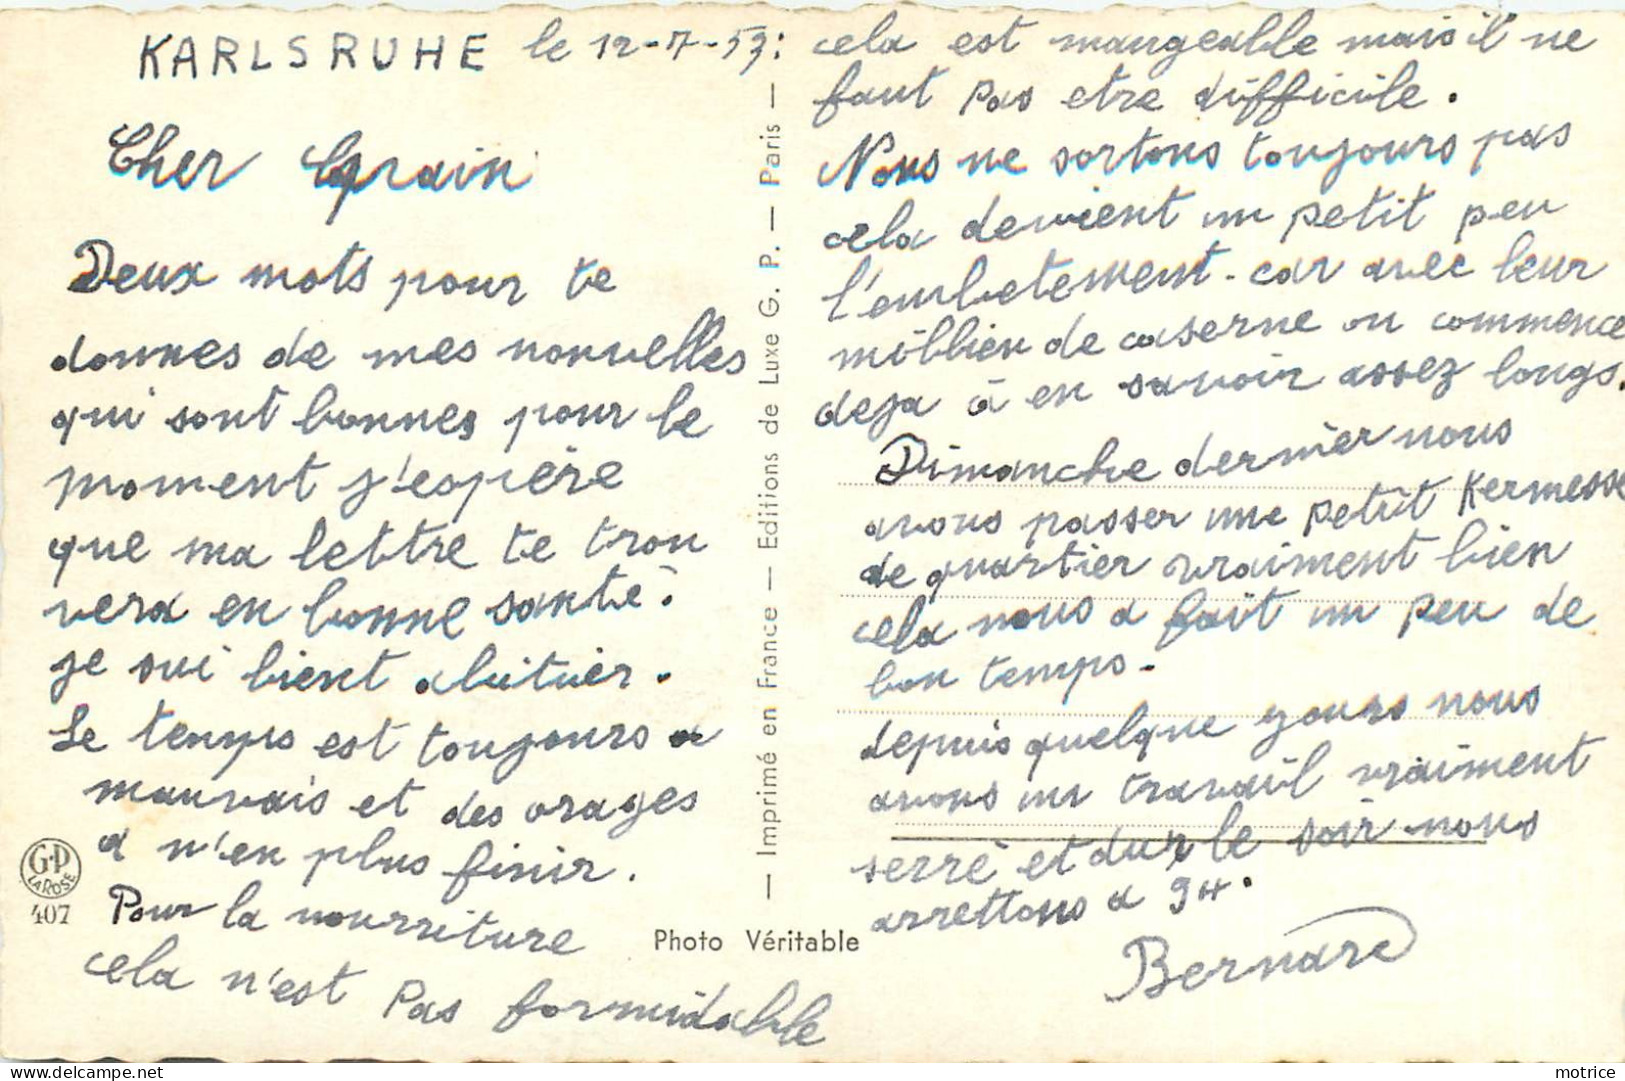 KARLSRUHE le 12-7-53:
Cher Copain
Deux mots pour te
donnes de mes nouvelles
qui sont bonnes pour le
moment j'espère
que ma lettre te trou
vera en bonne santé.
je sui bient abituér.
Le temps est toujours a
mauvais et des orages
a n'en plus finir.
Pour la nourriture
cela n'est Pas formidable
G-P
LA ROSE
407
— Imprimé en France — Editions de Luxe G. P. — Paris —
Photo Véritable
cela est mangeable mais il ne
faut Pas etre difficile.
Nous ne sortons toujours pas
cela devient un petit peu
l'embetement - car avec leur
millieu de caserne on commence
deja à en savoir assez longs.
Dimanche dernier nous
avons passer une petit Kermesse
de quartier vraiment bien
cela nous a fait un peu de
bon temps-
depuis quelque yours nous
avons un travail vraiment
serré et dur le soir nous
arrettons a 9H.
Bernard
motrice